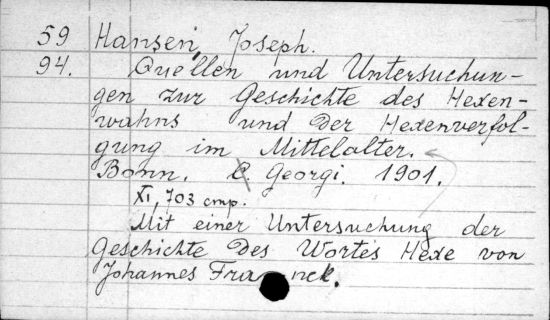 59 Hansen, Joseph.
94. Quellen und Untersuchun-
gen zur Geschichte des Hexen-
wahns und der Hexenverfol-
gung im Mittelalter.
Bonn. C. Georgi. 1901.
XI, 703 стр.
Mit einer Untersuchung der
Geschichte des Wortes Hexe von
Johannes Franck.